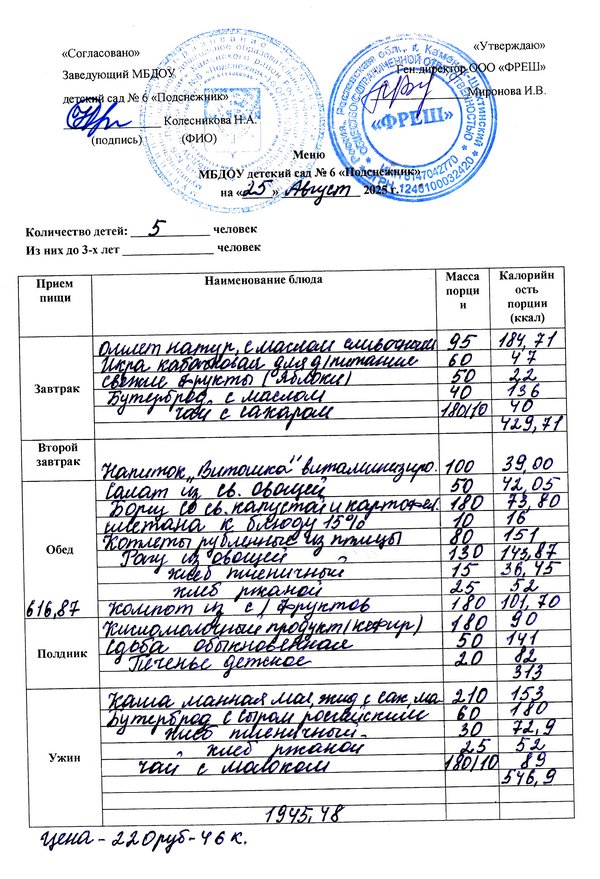 «Согласовано» «Утверждаю»
Заведующий МБДОУ Ген.директор ООО «ФРЕШ»
детский сад № 6 «Подснежник» Миронова И.В.
Колесникова Н.А.
(подпись) (ФИО)
«ФРЕШ»
ИНН 6147042770
ОГРН 1246100032420
Меню
МБДОУ детский сад № 6 «Подснежник»
на «25» Август 2025 г.
Количество детей: 5 человек
Из них до 3-х лет человек
Прием пищи Наименование блюда Масса порции Калорийность порции (ккал)
Завтрак
Омлет натур. с маслом сливочным 95 184,71
Икра кабачковая для д/питание 60 47
свежие фрукты (яблоки) 50 22
Бутерброд с маслом 40 136
чай с сахаром 180/10 40
429,71
Второй завтрак
Напиток „Витошка" витаминизиро. 100 39,00
Обед
Салат из св. овощей 50 42,05
Борщ со св. капустай и картофел. 180 73,80
сметана к блюду 15% 10 16
Котлеты рубленные из птицы 80 151
Рагу из овощей 130 143,87
хлеб пшеничный 15 36,45
хлеб ржаной 25 52
616,87 компот из с/фруктов 180 101,70
Полдник
Кисломолочный продукт (кефир) 180 90
Сдоба обыкновенная 50 141
Печенье детское 20 82
313
Ужин
Каша манная мол. жид с сах, ма 210 153
Бутерброд с сыром российским 60 180
хлеб пшеничный 30 72,9
хлеб ржаной 25 52
чай с молоком 180/10 89
546,9
1945,48
Цена - 220руб-46 к.